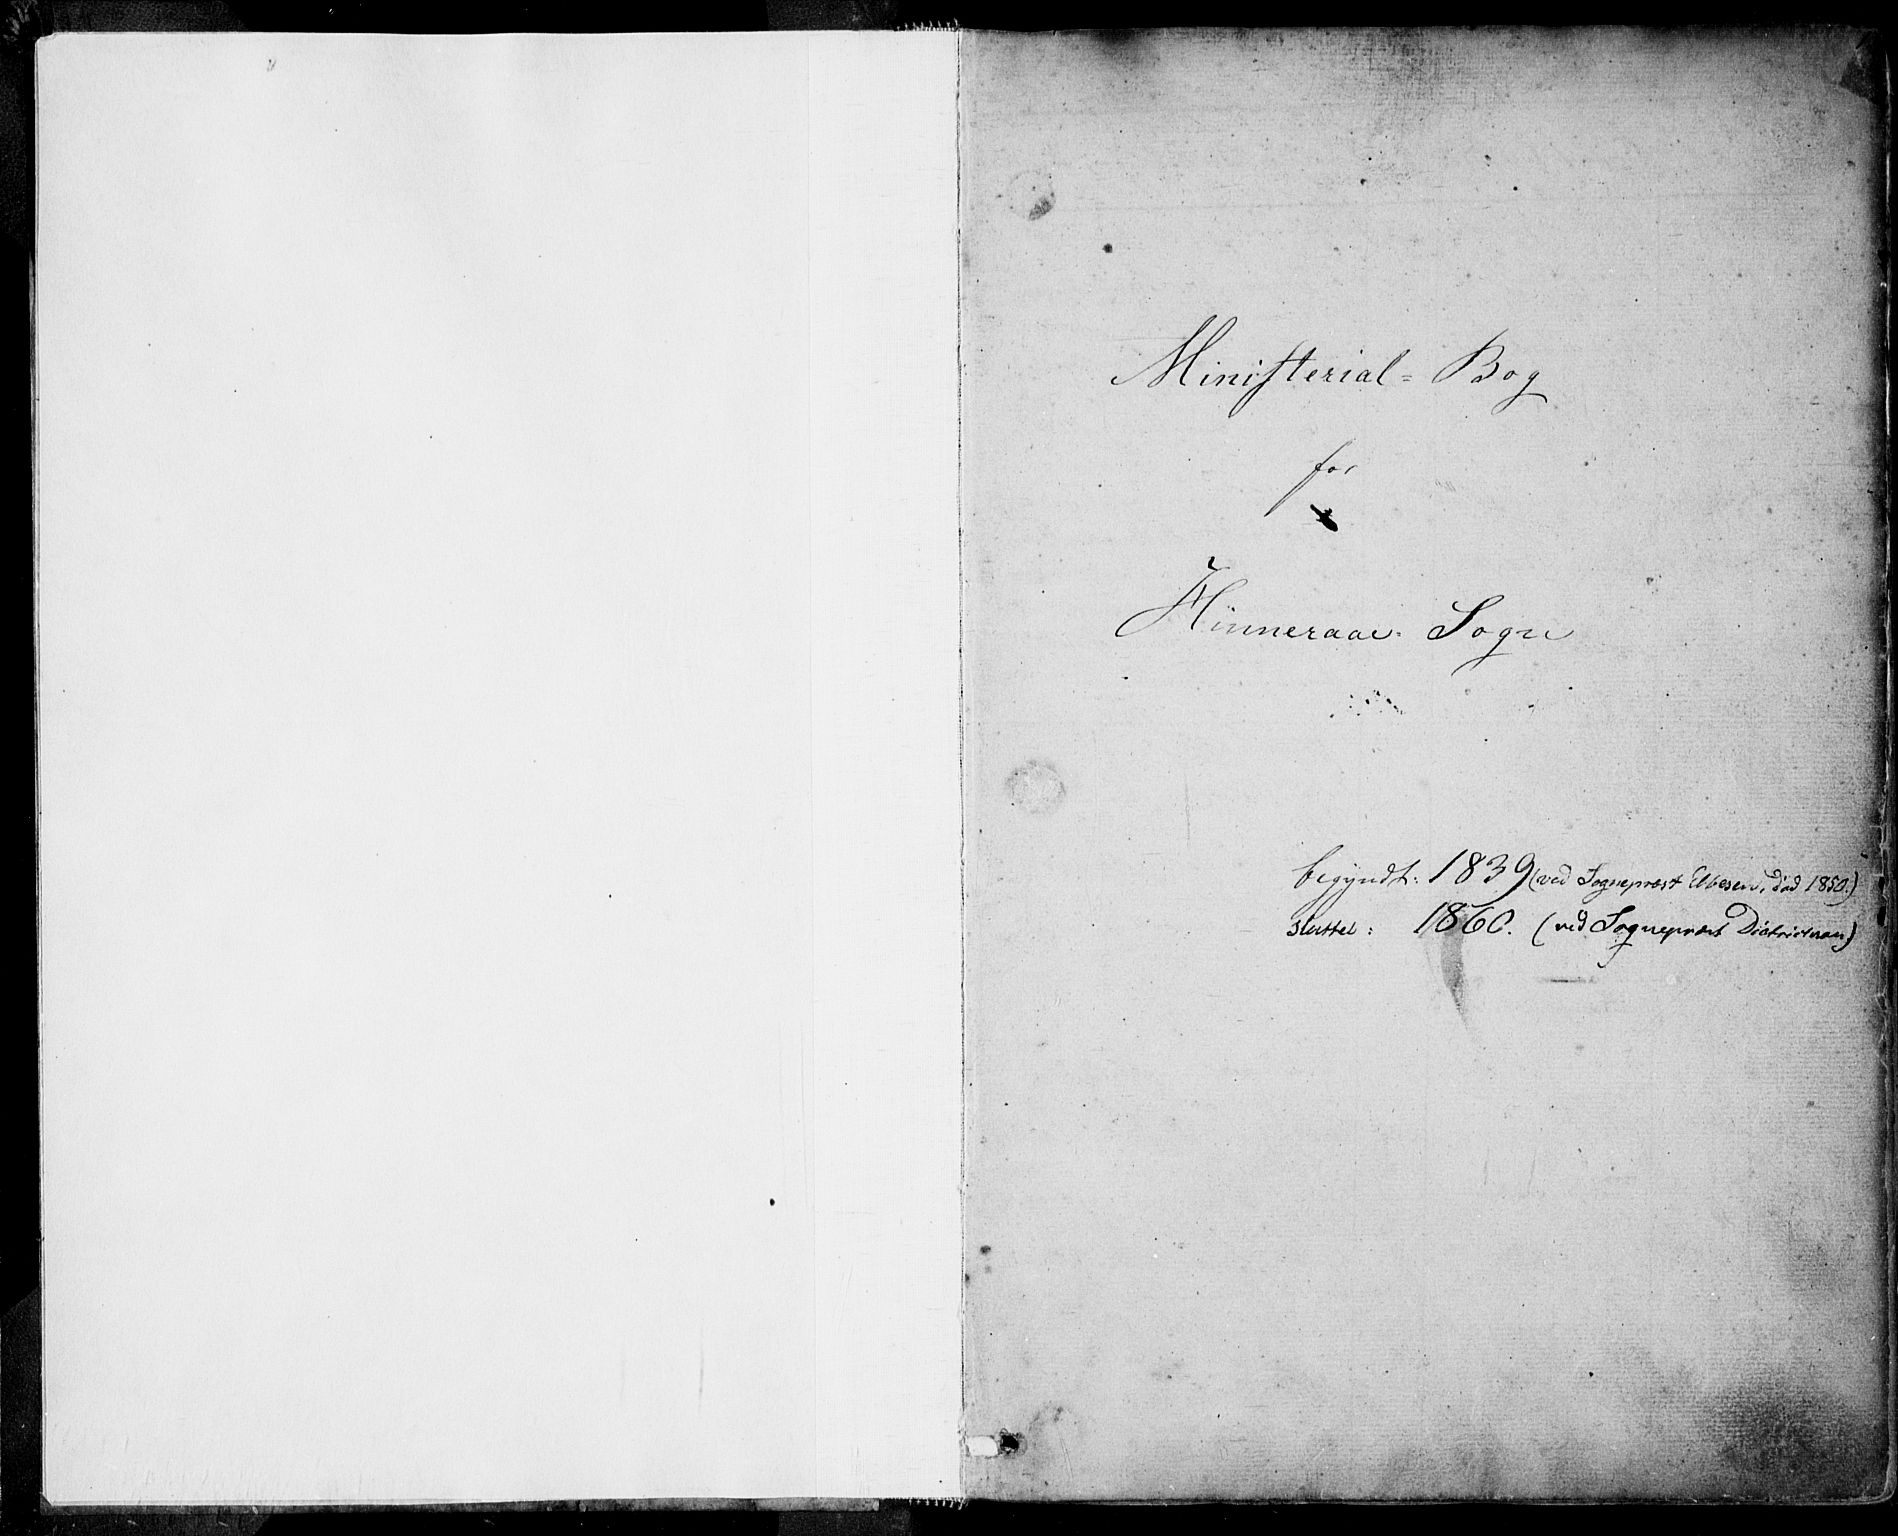 Ministerial- Bog
for
Hinneraae- Sogn
begyndt: 1839 (ved Sognepræst Ebbesen, död 1850.)
sluttet: 1860. (ved Sognepræst Dietrichson)